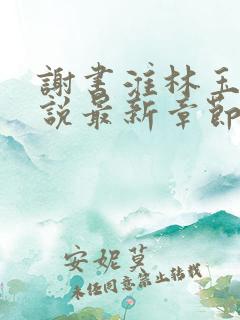 謝書淮林玉
說最新章節
安妮莫
未經同意禁止轉載